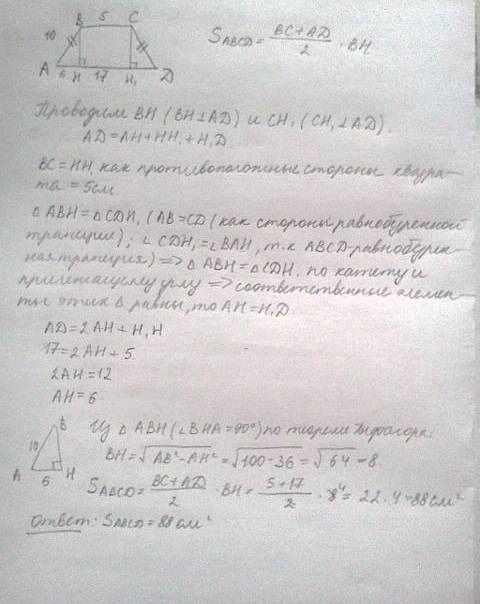 B 5 C
10
A 6 H 17 H₁ D
S_ABCD = (BC+AD)/2 · BH
Проводим BH (BH⊥AD) и CH₁ (CH₁⊥AD).
AD=AH+HH₁+H₁D
BC=HH₁ как противоположные стороны квадра-
та = 5см
△ABH=△CDH₁ (AB=CD (как стороны равнобуренной
трапции); ∠CDH₁=∠BAH, т.к ABCD-равнобурен-
ная трапция) => △ABH=△CDH₁ по катету и
прилежащему углу => соответственные элемен-
ты этих △ равны, то AH=H₁D.
AD=2AH+H₁H
17=2AH+5
2AH=12
AH=6
B
10
A 6 H
Из △ABH (∠BHA=90°) по теореме Пифагора:
BH=√(AB²-AH²)=√(100-36)=√64=8
S_ABCD=(BC+AD)/2 · BH=(5+17)/2 · 8⁴=22·4=88см²
Ответ: S_ABCD=88см²